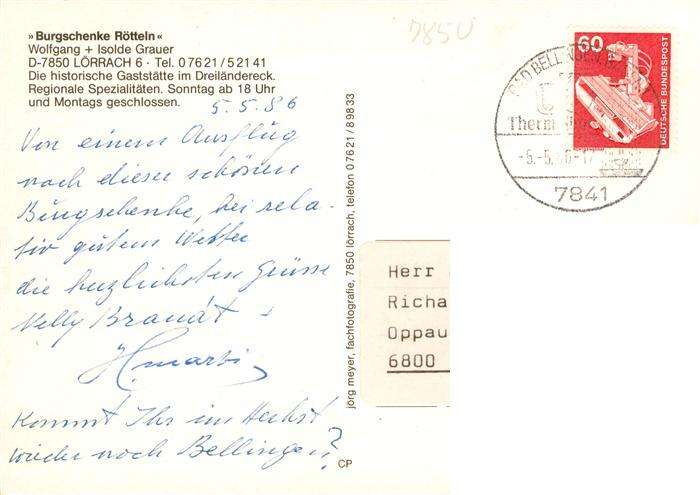 »Burgschenke Rötteln«
Wolfgang + Isolde Grauer
D-7850 LÖRRACH 6 · Tel. 07621/52141
Die historische Gaststätte im Dreiländereck.
Regionale Spezialitäten. Sonntag ab 18 Uhr
und Montags geschlossen.
5.5.86
Von einem Ausflug
nach dieser schönen
Burgschenke, bei rela-
tiv gutem Wetter
die herzlichsten Grüsse
Nelly Brandt +
Kommt Ihr im Herbst
wieder nach Bellingen?
CP
jörg meyer, fachfotografie, 7850 lörrach, telefon 07621/89833
7850
60
DEUTSCHE BUNDESPOST
BAD BELL
Therm
7841
Herr
Richa
Oppau
6800